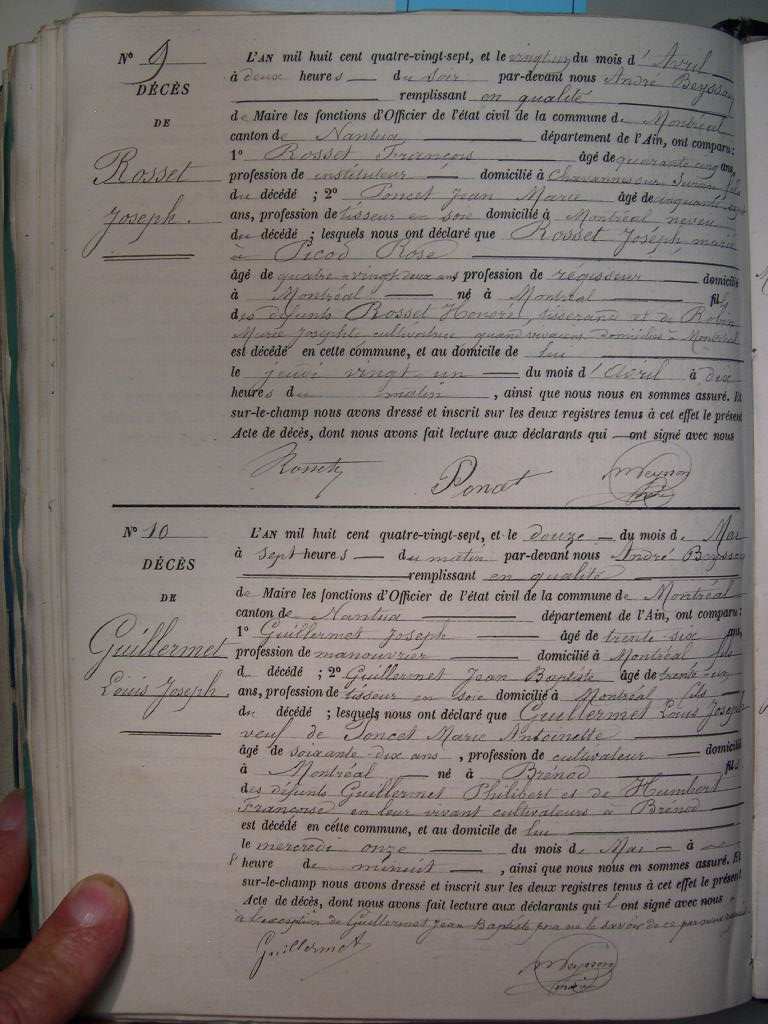 N° 9
DÉCÈS
DE
Rosset
Joseph.
L'AN mil huit cent quatre-vingt-sept, et le vingt un du mois d'Avril
à deux heures du soir par-devant nous André Beyssac
remplissant en qualité
de Maire les fonctions d'Officier de l'état civil de la commune de Montréal
canton de Nantua département de l'Ain, ont comparu :
1° Rosset François âgé de quarante cinq ans,
profession de instituteur domicilié à Chavannes sur Suran fils
du décédé ; 2° Poncet Jean Marie âgé de cinquante
ans, profession de tisseur en soie domicilié à Montréal neveu
du décédé ; lesquels nous ont déclaré que Rosset Joseph, marié
à Picod Rose
âgé de quatre-vingt deux ans profession de régisseur domicilié
à Montréal né à Montréal fils
des défunts Rosset Honoré, tisserand et de Robin
Marie Josephte cultivatrice quand vivaient domiciliés à Montréal
est décédé en cette commune, et au domicile de lui
le jeudi vingt un du mois d'Avril à dix
heures du matin , ainsi que nous nous en sommes assuré. Et
sur-le-champ nous avons dressé et inscrit sur les deux registres tenus à cet effet le présent
Acte de décès, dont nous avons fait lecture aux déclarants qui ont signé avec nous
N° 10
DÉCÈS
DE
Guillermet
Louis Joseph.
L'AN mil huit cent quatre-vingt-sept, et le douze du mois de Mai
à sept heures du matin par-devant nous André Beyssac
remplissant en qualité
de Maire les fonctions d'Officier de l'état civil de la commune de Montréal
canton de Nantua département de l'Ain, ont comparu :
1° Guillermet Joseph âgé de trente six ans,
profession de manouvrier domicilié à Montréal fils
du décédé ; 2° Guillermet Jean Baptiste âgé de trente
ans, profession de tisseur en soie domicilié à Montréal fils
du décédé ; lesquels nous ont déclaré que Guillermet Louis Joseph
veuf de Poncet Marie Antoinette
âgé de soixante dix ans , profession de cultivateur domicilié
à Montréal né à Brénod fils
des défunts Guillermet Philibert et de Humbert
Françoise en leur vivant cultivateurs à Brénod
est décédé en cette commune, et au domicile de lui
le mercredi onze du mois de Mai à
heure de minuit , ainsi que nous nous en sommes assuré. Et
sur-le-champ nous avons dressé et inscrit sur les deux registres tenus à cet effet le présent
Acte de décès, dont nous avons fait lecture aux déclarants qui l'ont signé avec nous
à l'exception de Guillermet Jean Baptiste pour ne le savoir de ce par nous
Guillermet